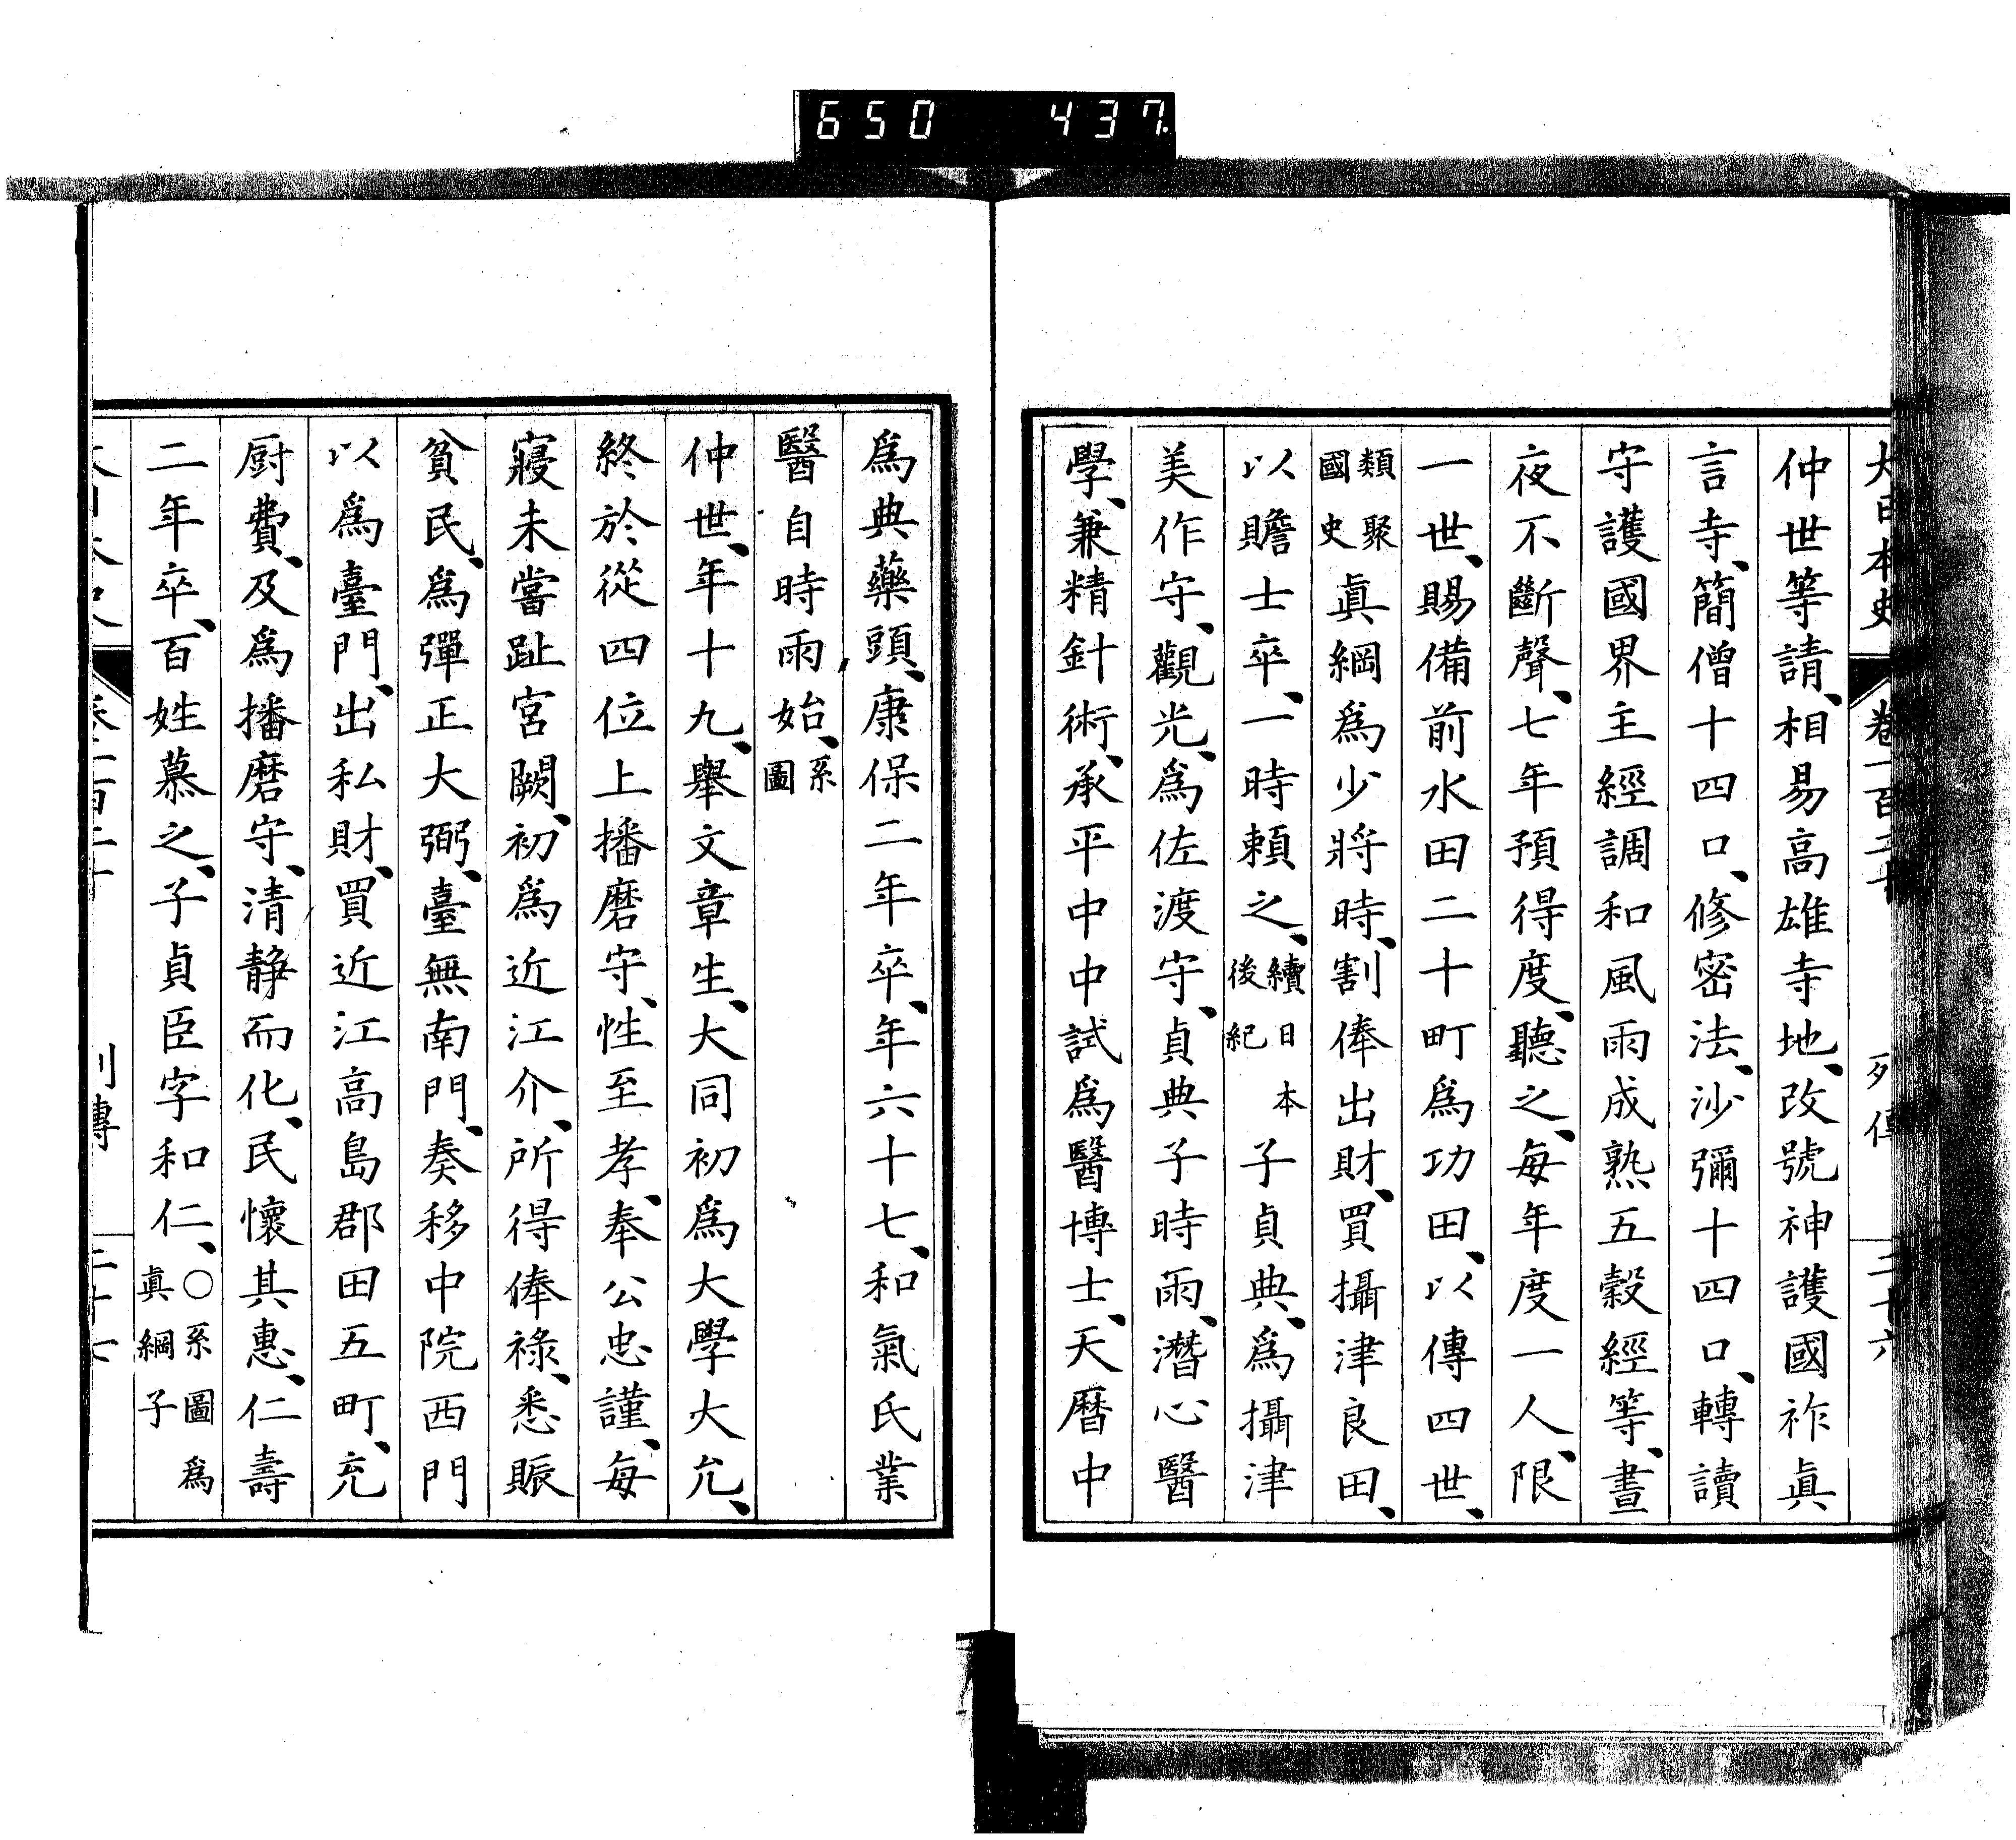 650 437.
大日本史 卷一百二十 列傳 二十六
仲世等請、相易高雄寺地、改號神護國祚眞
言寺、簡僧十四口、修密法、沙彌十四口、轉讀
守護國界主經調和風雨成熟五穀經等、晝
夜不斷聲、七年預得度、聽之、每年度一人、限
一世、賜備前水田二十町爲功田、以傳四世、
類聚國史眞綱爲少將時、割俸出財、買攝津良田、
以贍士卒、一時賴之、續日本後紀子貞典、爲攝津
美作守、觀光、爲佐渡守、貞典子時雨、潛心醫
學、兼精針術、承平中中試爲醫博士、天曆中
爲典藥頭、康保二年卒、年六十七、和氣氏業
醫自時雨始、系圖
仲世、年十九、舉文章生、大同初爲大學大允、
終於從四位上播磨守、性至孝、奉公忠謹、每
寢未嘗趾宮闕、初爲近江介、所得俸祿、悉賑
貧民、爲彈正大弼、臺無南門、奏移中院西門
以爲臺門、出私財、買近江高島郡田五町、充
厨費、及爲播磨守、清靜而化、民懷其惠、仁壽
二年卒、百姓慕之、子貞臣字和仁、〇系圖爲眞綱子
列傳 二十七